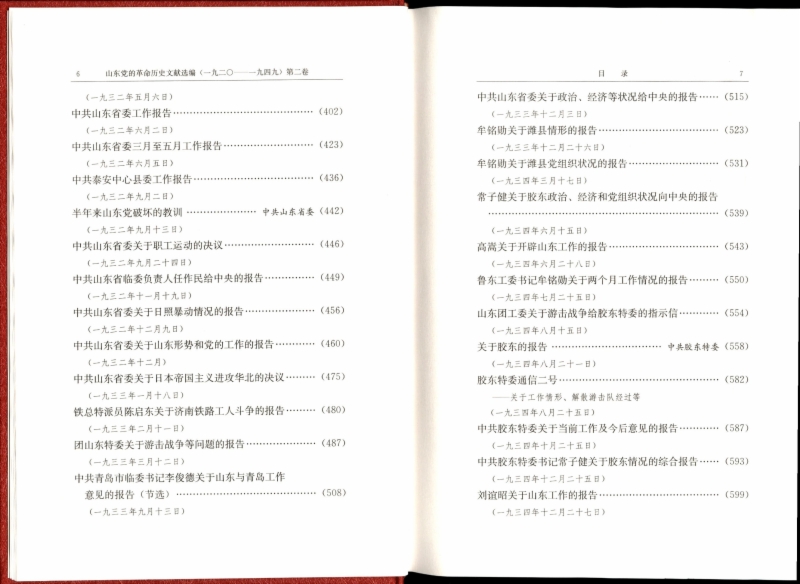 6 山东党的革命历史文献选编（一九二〇——一九四九）第二卷
（一九三二年五月六日）
中共山东省委工作报告……………………………（402）
（一九三二年六月二日）
中共山东省委三月至五月工作报告…………………（423）
（一九三二年六月五日）
中共泰安中心县委工作报告………………………（436）
（一九三二年九月二日）
半年来山东党破坏的教训……………中共山东省委（442）
（一九三二年九月十三日）
中共山东省委关于职工运动的决议…………………（446）
（一九三二年九月二十四日）
中共山东省临委负责人任作民给中央的报告…………（449）
（一九三二年十一月十九日）
中共山东省委关于日照暴动情况的报告………………（456）
（一九三二年十二月九日）
中共山东省委关于山东形势和党的工作的报告…………（460）
（一九三二年十二月）
中共山东省委关于日本帝国主义进攻华北的决议………（475）
（一九三三年一月十八日）
铁总特派员陈启东关于济南铁路工人斗争的报告………（480）
（一九三三年二月十一日）
团山东特委关于游击战争等问题的报告………………（487）
（一九三三年三月十二日）
中共青岛市临委书记李俊德关于山东与青岛工作
意见的报告（节选）……………………………（508）
（一九三三年九月十三日）
目 录 7
中共山东省委关于政治、经济等状况给中央的报告……（515）
（一九三三年十二月三日）
牟铭勋关于潍县情形的报告………………………（523）
（一九三三年十二月二十六日）
牟铭勋关于潍县党组织状况的报告…………………（531）
（一九三四年三月十七日）
常子健关于胶东政治、经济和党组织状况向中央的报告
……………………………………………………（539）
（一九三四年六月十五日）
高嵩关于开辟山东工作的报告……………………（543）
（一九三四年六月二十八日）
鲁东工委书记牟铭勋关于两个月工作情况的报告………（550）
（一九三四年七月二十五日）
山东团工委关于游击战争给胶东特委的指示信…………（554）
（一九三四年八月十五日）
关于胶东的报告……………………中共胶东特委（558）
（一九三四年八月二十一日）
胶东特委通信二号………………………………（582）
——关于工作情形、解散游击队经过等
（一九三四年八月二十五日）
中共胶东特委关于当前工作及今后意见的报告…………（587）
（一九三四年十月二十五日）
中共胶东特委书记常子健关于胶东情况的综合报告……（593）
（一九三四年十二月二十五日）
刘谊昭关于山东工作的报告………………………（599）
（一九三四年十二月二十七日）